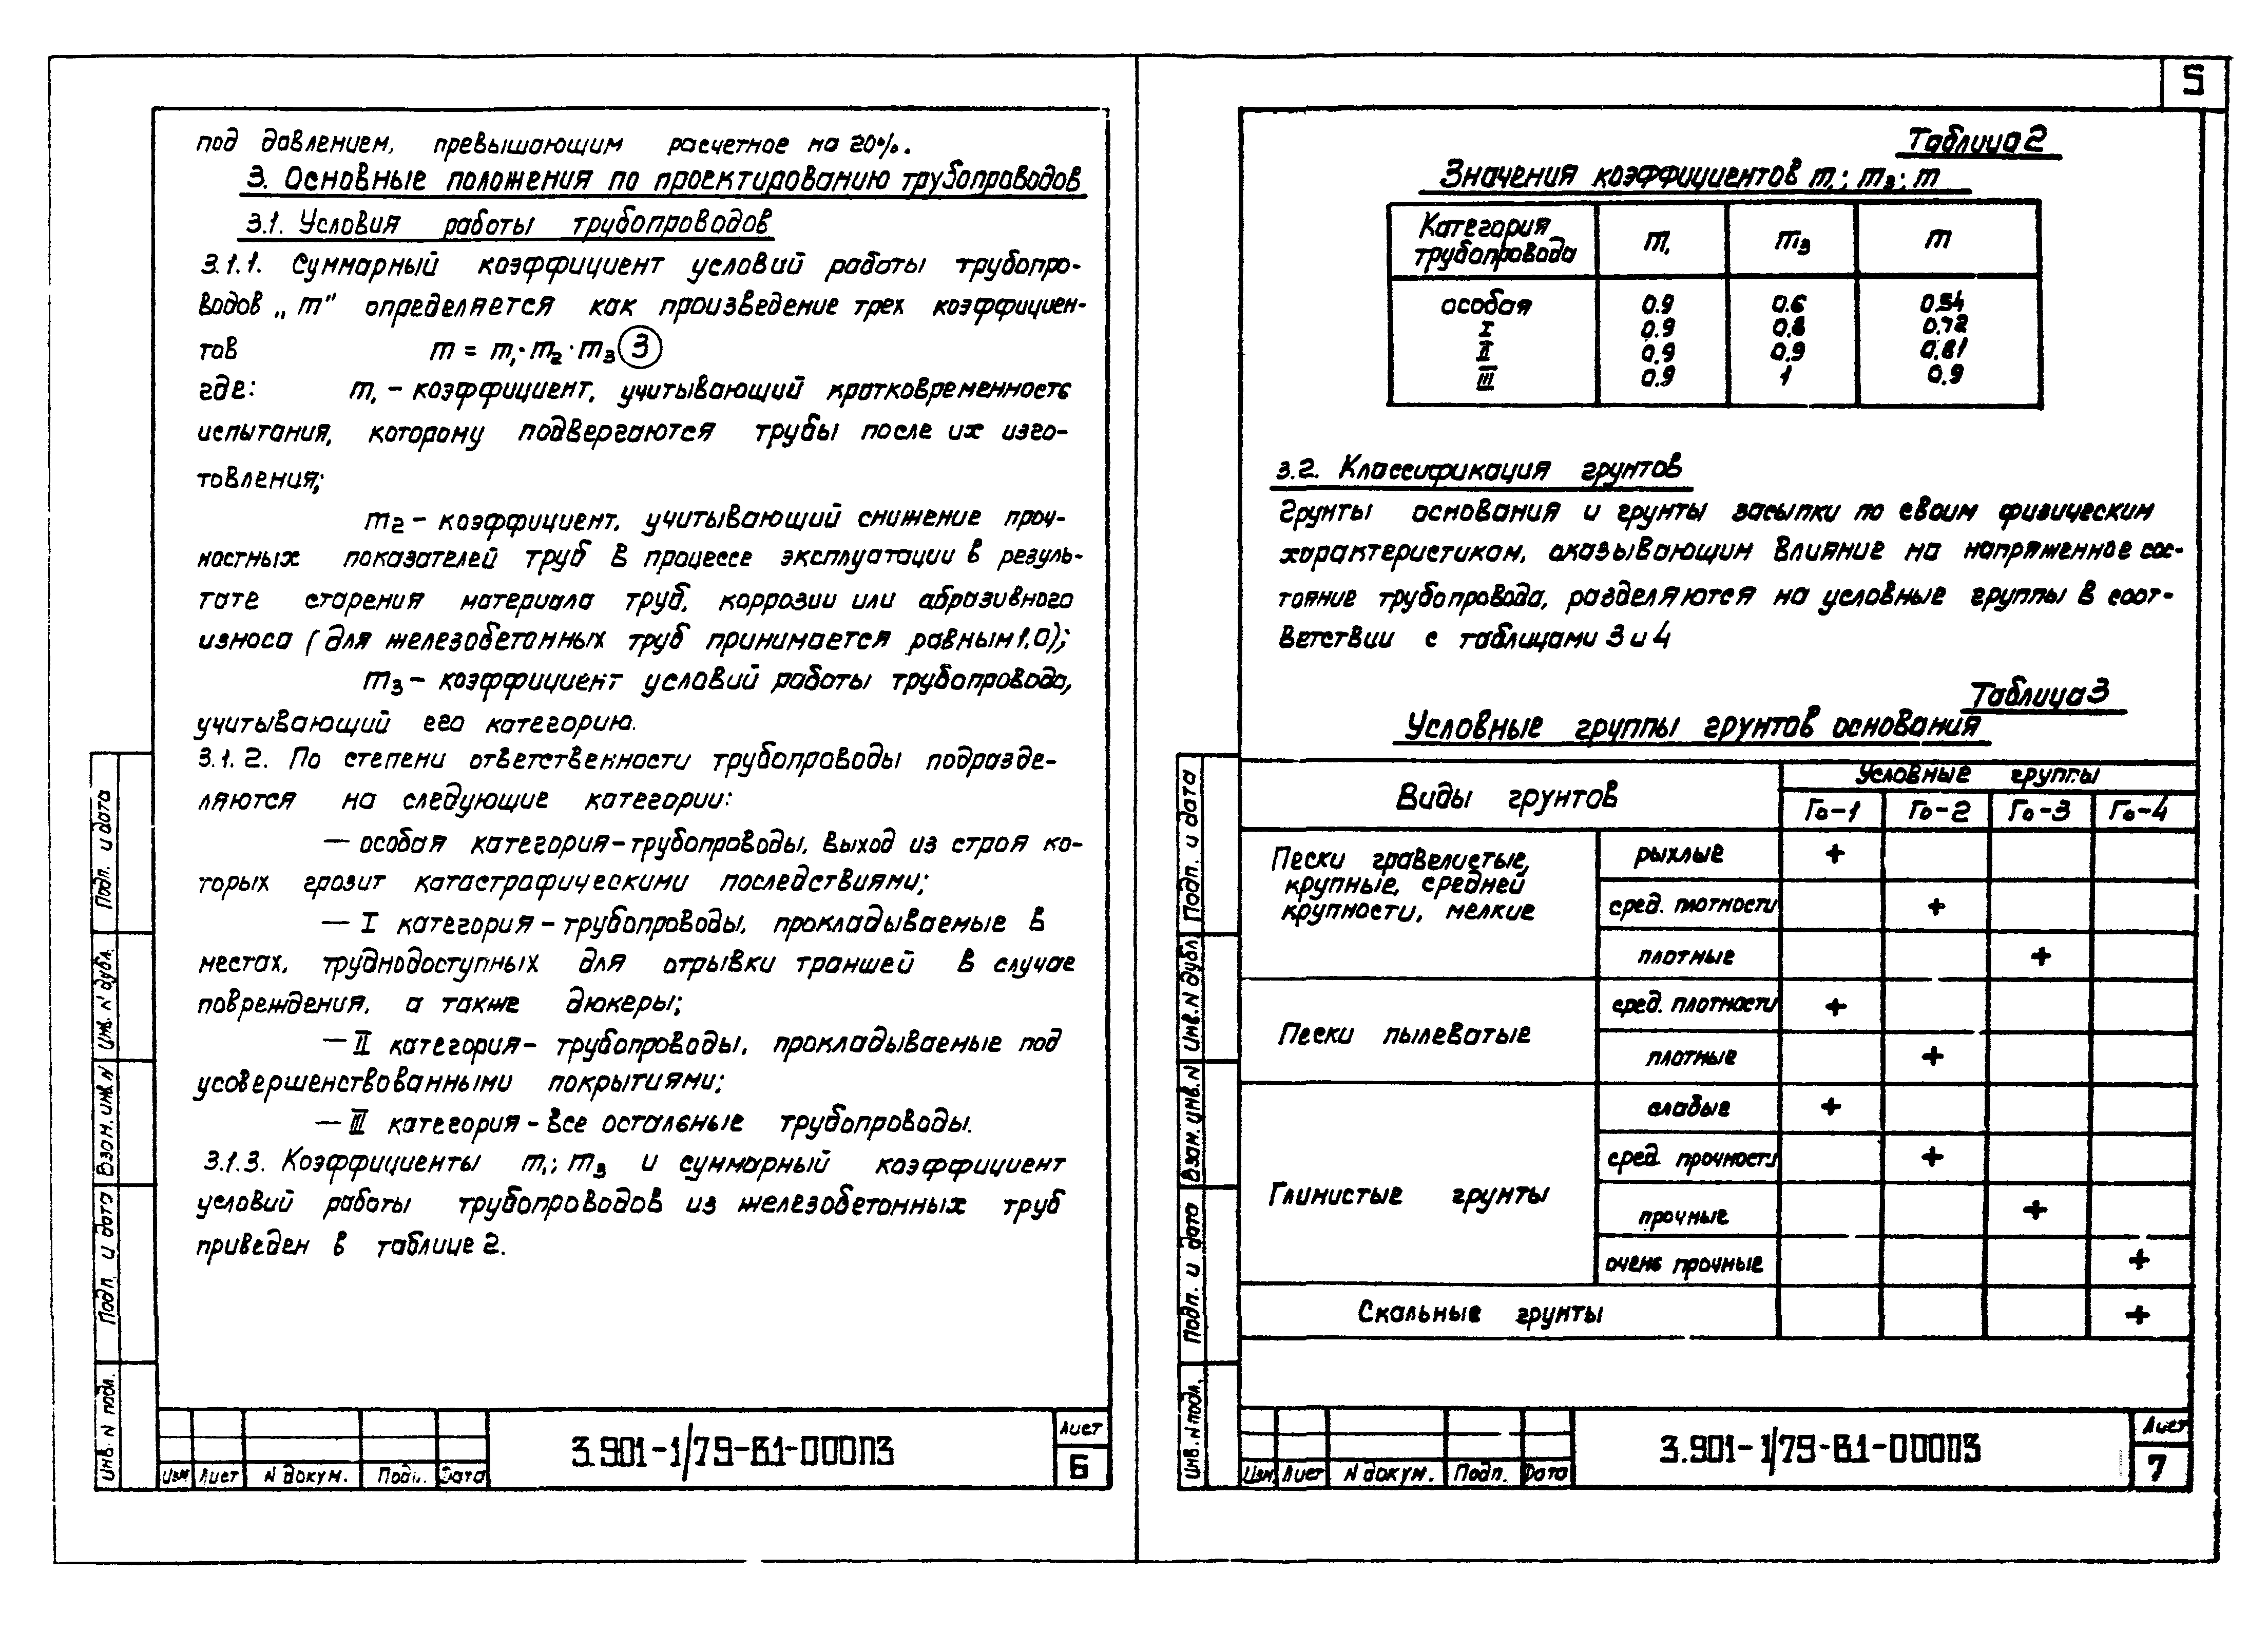 под давлением, превышающим расчетное на 20%.
3. Основные положения по проектированию трубопроводов
3.1. Условия работы трубопроводов
3.1.1. Суммарный коэффициент условий работы трубопро-
водов „m" определяется как произведение трех коэффициен-
тов m = m₁·m₂·m₃ (3)
где: m₁ – коэффициент, учитывающий кратковременность
испытания, которому подвергаются трубы после их изго-
товления;
m₂ – коэффициент, учитывающий снижение проч-
ностных показателей труб в процессе эксплуатации в резуль-
тате старения материала труб, коррозии или абразивного
износа (для железобетонных труб принимается равным 1,0);
m₃ – коэффициент условий работы трубопровода,
учитывающий его категорию.
3.1.2. По степени ответственности трубопроводы подразде-
ляются на следующие категории:
— особая категория – трубопроводы, выход из строя ко-
торых грозит катастрофическими последствиями;
— I категория – трубопроводы, прокладываемые в
местах, труднодоступных для отрывки траншей в случае
повреждения, а также дюкеры;
— II категория – трубопроводы, прокладываемые под
усовершенствованными покрытиями;
— III категория – все остальные трубопроводы.
3.1.3. Коэффициенты m₁; m₃ и суммарный коэффициент
условий работы трубопроводов из железобетонных труб
приведен в таблице 2.
Инв. N подл. Подп. и дата Взам. инв. N Инв. N дубл. Подп. и дата
Изм Лист N докум. Подп. Дата
3.901-1/79-В1-000ПЗ
Лист
6
5
Таблица 2
Значения коэффициентов m₁; m₃; m
Категория трубопровода m₁ m₃ m
особая 0.9 0.6 0.54
I 0.9 0.8 0.72
II 0.9 0.9 0.81
III 0.9 1 0.9
3.2. Классификация грунтов
Грунты основания и грунты засыпки по своим физическим
характеристикам, оказывающим влияние на напряженное сос-
тояние трубопровода, разделяются на условные группы в соот-
ветствии с таблицами 3 и 4
Таблица 3
Условные группы грунтов основания
Виды грунтов Условные группы
Го-1 Го-2 Го-3 Го-4
Пески гравелистые, рыхлые +
крупные, средней
крупности, мелкие сред. плотности +
плотные +
сред. плотности +
Пески пылеватые
плотные +
слабые +
сред. прочности +
Глинистые грунты
прочные +
очень прочные +
Скальные грунты +
Инв. N подл. Подп. и дата Взам. инв. N Инв. N дубл. Подп. и дата
Изм. Лист N докум. Подп. Дата
3.901-1/79-В1-000ПЗ
Лист
7